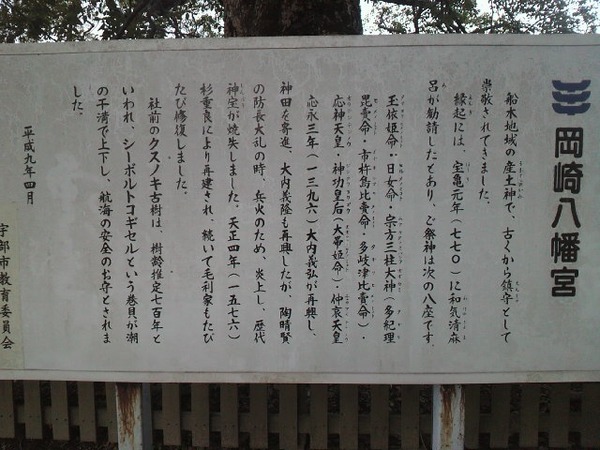 岡崎八幡宮
船木地域の産土神で、古くから鎮守として
崇敬されてきました。
縁起には、宝亀元年(七七〇)に和気清麻
呂が勧請したとあり、ご祭神は次の八座です。
玉依姫命・日女命・宗方三柱大神(多紀理
毘売命・市杵島比売命・多岐津比売命)・
応神天皇・神功皇后(大帯姫命)・仲哀天皇
応永三年(一三九六)大内義弘が再興し、
神田を寄進、大内義隆も再興したが、陶晴賢
の防長大乱の時、兵火のため、炎上し、歴代
神宝が焼失しました。天正四年(一五七六)
杉重良により再建され、続いて毛利家もたび
たび修復しました。
社前のクスノキ古樹は、樹齢推定七百年と
いわれ、シーボルトコギセルという巻貝が潮
の干満で上下し、航海の安全のお守とされま
した。
平成九年四月
宇部市教育委員会